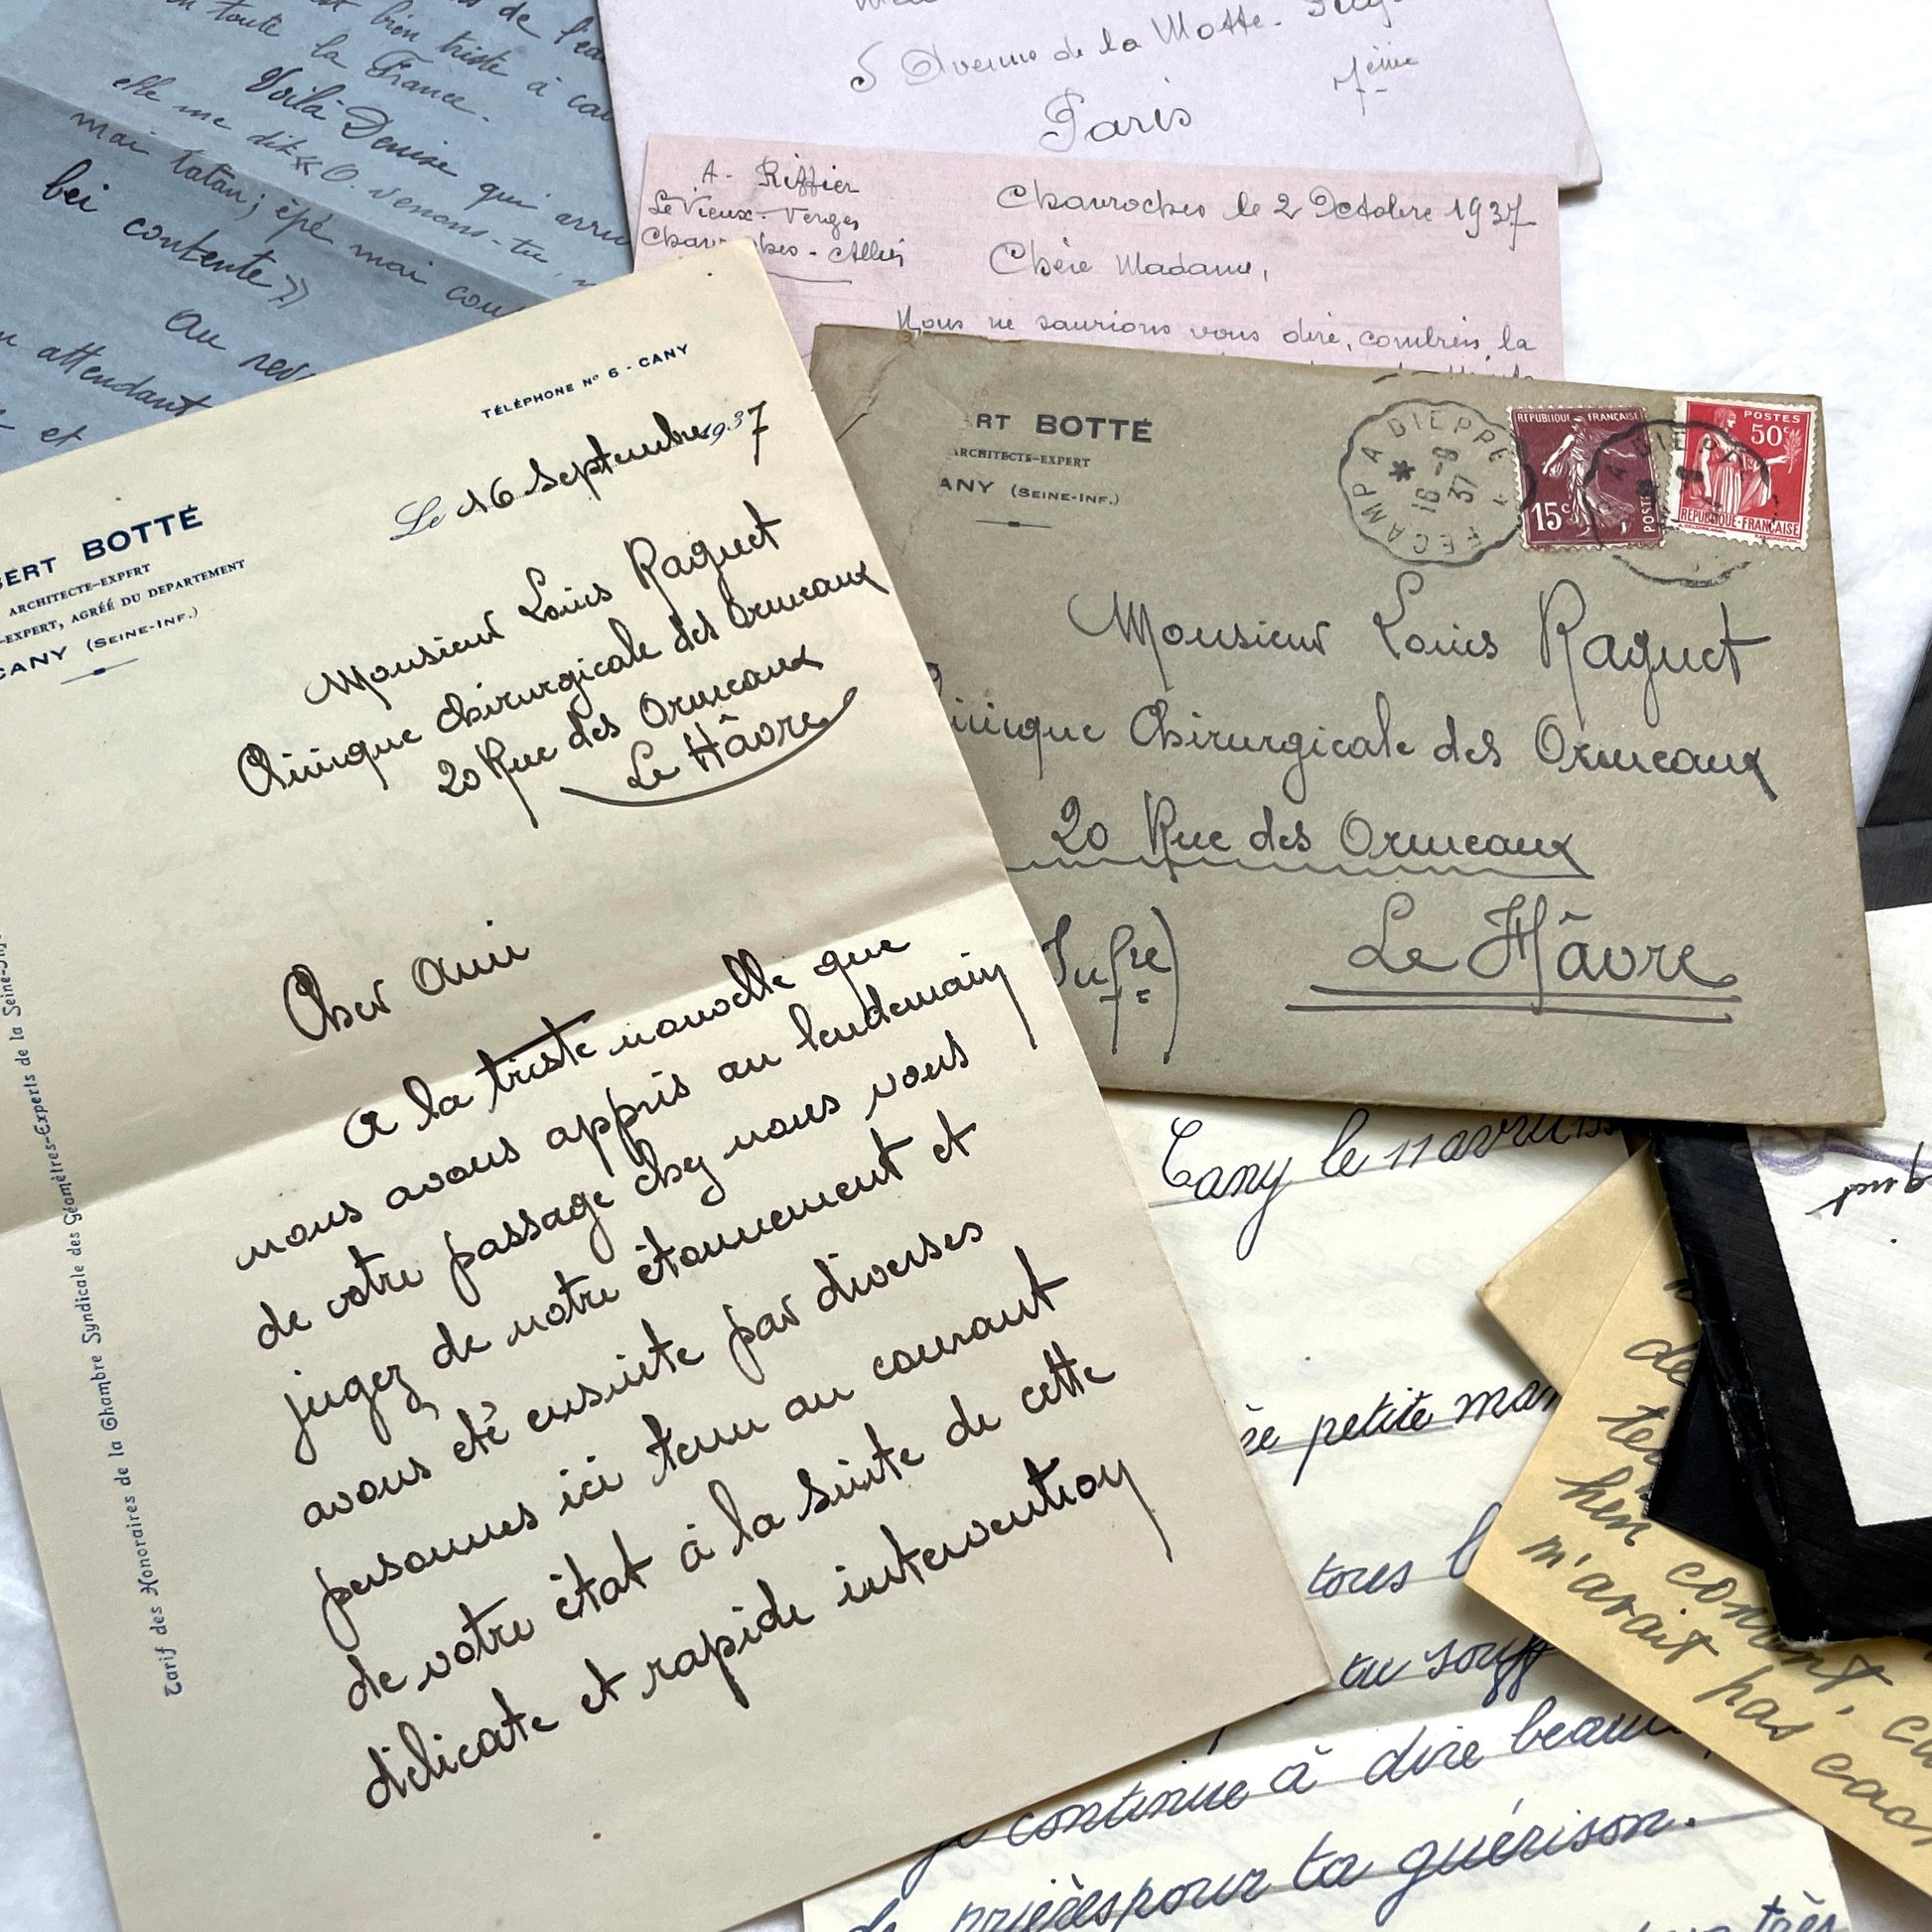 bien triste à
toute la France.
Voilà Denise qui
elle me dit « O. venans-tu,
mai tatan; épé mai
bei contente »
Au
attendant
et
5 Avenue de la Motte-
7ème
Paris
A. Riffier
Le Vieux-Verges
- Allier
Chavroches le 2 Octobre 1937
Chère Madame,
Nous ne saurions vous dire, combien, la
TÉLÉPHONE Nº 6 - CANY
Le 16 Septembre 1937
BERT BOTTÉ
ARCHITECTE-EXPERT
-EXPERT, AGRÉÉ DU DEPARTEMENT
CANY (SEINE-INF.)
Monsieur Louis Raguet
Clinique Chirurgicale des Ormeaux
20 Rue des Ormeaux
Le Hâvre
Cher Ami
A la triste nouvelle que
nous avons appris au lendemain
de votre passage chez nous vous
jugez de notre étonnement et
avons été ensuite par diverses
personnes ici tenu au courant
de votre état à la suite de cette
délicate et rapide intervention
Tarif des Honoraires de la Chambre Syndicale des Géomètres-Experts de la Seine-Inf
RT BOTTÉ
ARCHITECTE-EXPERT
ANY (SEINE-INF.)
FECAMP A DIEPPE
16 -9
37
REPUBLIQUE FRANÇAISE
15c
POSTES
POSTES
50c
REPUBLIQUE-FRANÇAISE
Monsieur Louis Raguet
inique Chirurgicale des Ormeaux
20 Rue des Ormeaux
Infre)
Le Hâvre
Cany le 11 avril
petite
tu
je continue à dire
de prières pour ta guérison.
très
de
m'avait pas